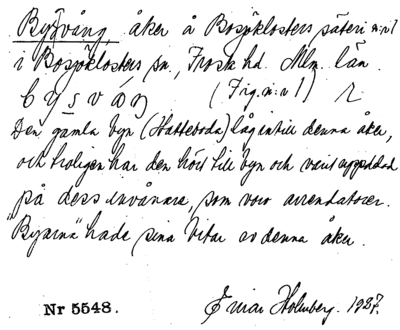 Bysvång, åker å Bosjöklosters säteri n:r 1
i Bosjöklosters sn., Frosta hd. Mlm. län.
bysváŋ (Fig. n:r 1) r.
Den gamla byn (Hatteboda) låg intill denna åker,
och troligen har den hört till byn och varit uppodlad
på dess invånare, som voro arrendatorer.
"Byarna" hade sina bitar av denna åker.
Nr 5548. Einar Holmberg. 1927.